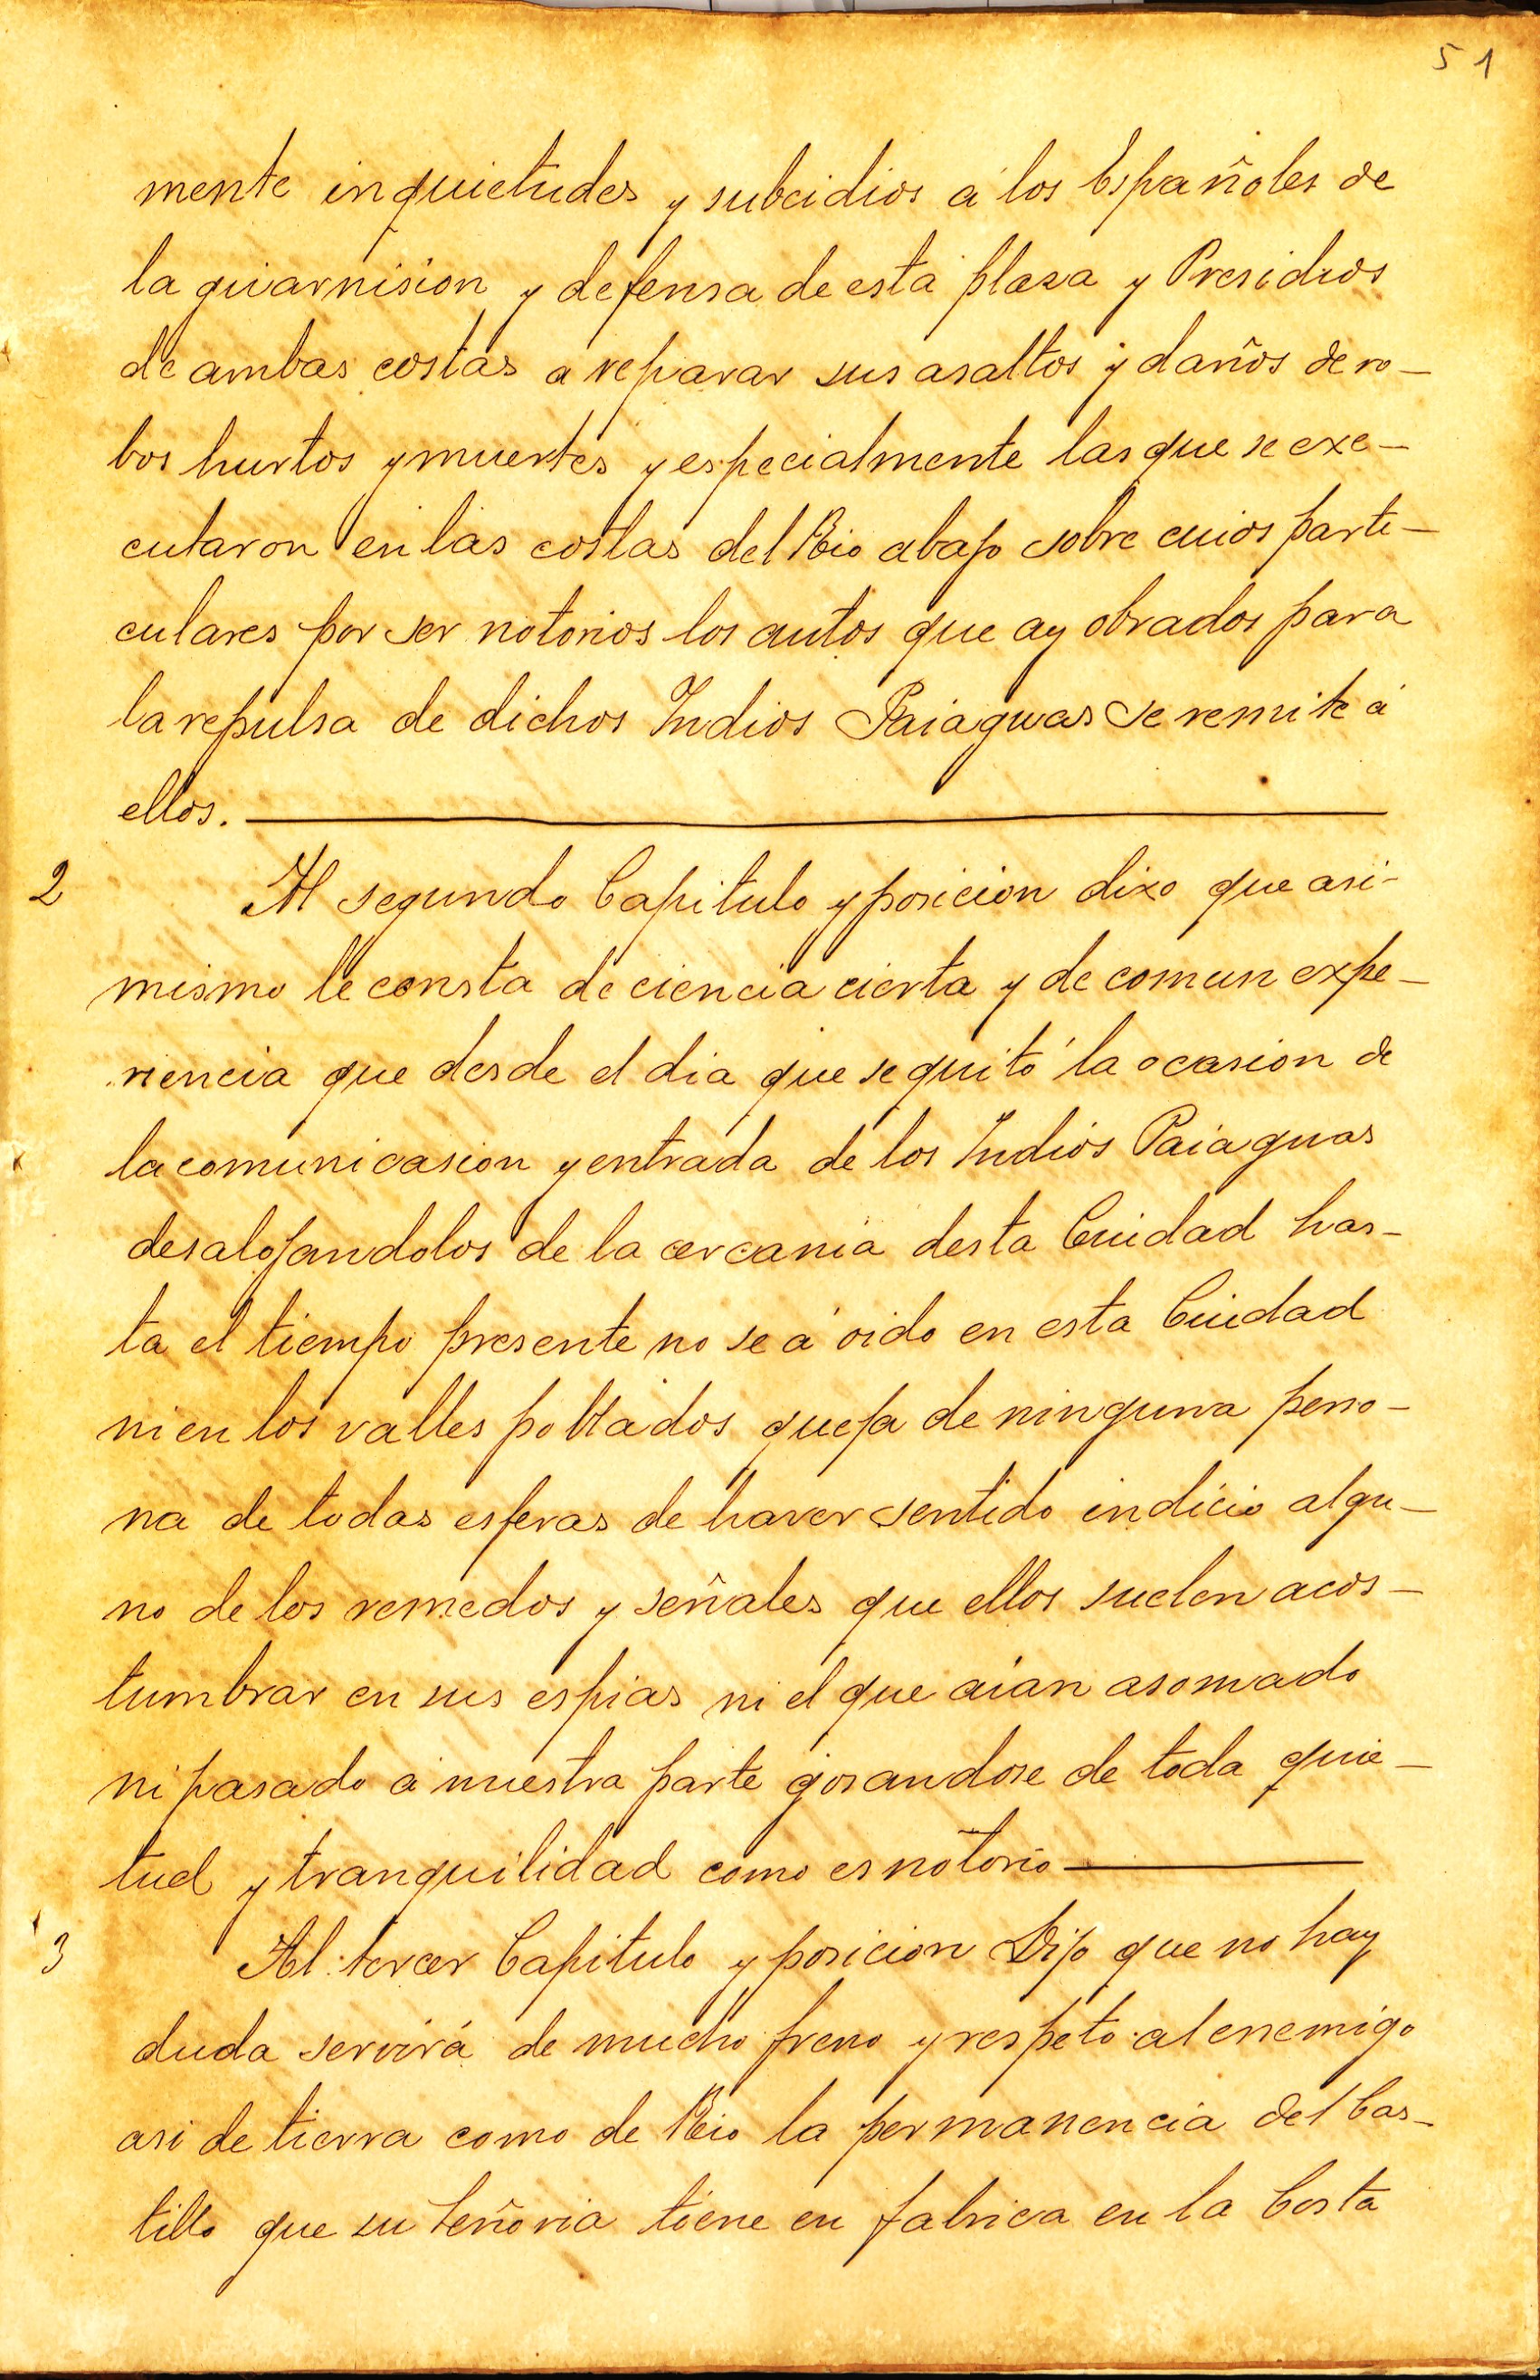 51
mente inquietudes y subcidios á los Españoles de
la guarnision y defensa de esta plaza y Presidios
de ambas costas a reparar sus asaltos y daños de ro-
bos hurtos y muertes y especialmente las que se exe-
cutaron en las costas del Rio abajo sobre cuios parti-
culares por ser notorios los autos que ay obrados para
la repulsa de dichos Indios Paiaguas se remite á
ellos.
2 Al segundo Capitulo y posicion dixo que asi-
mismo le consta de ciencia cierta y de comun expe-
riencia que desde el dia que se quitó la ocasion de
la comunicasion y entrada de los Indios Paiaguas
desalojandolos de la cercania desta Ciudad has-
ta el tiempo presente no se á oido en esta Ciudad
ni en los valles poblados queja de ninguna perso-
na de todas esferas de haver sentido indicio algu-
no de los remedos y señales que ellos suelen acos-
tumbrar en sus espias ni el que aian asomado
ni pasado a nuestra parte gosandose de toda quie-
tud y tranquilidad como es notorio
3 Al tercer Capitulo y posicion Dijo que no hay
duda servirá de mucho freno y respeto al enemigo
asi de tierra como de Rio la permanencia del Cas-
tillo que su Señoria tiene en fabrica en la Costa